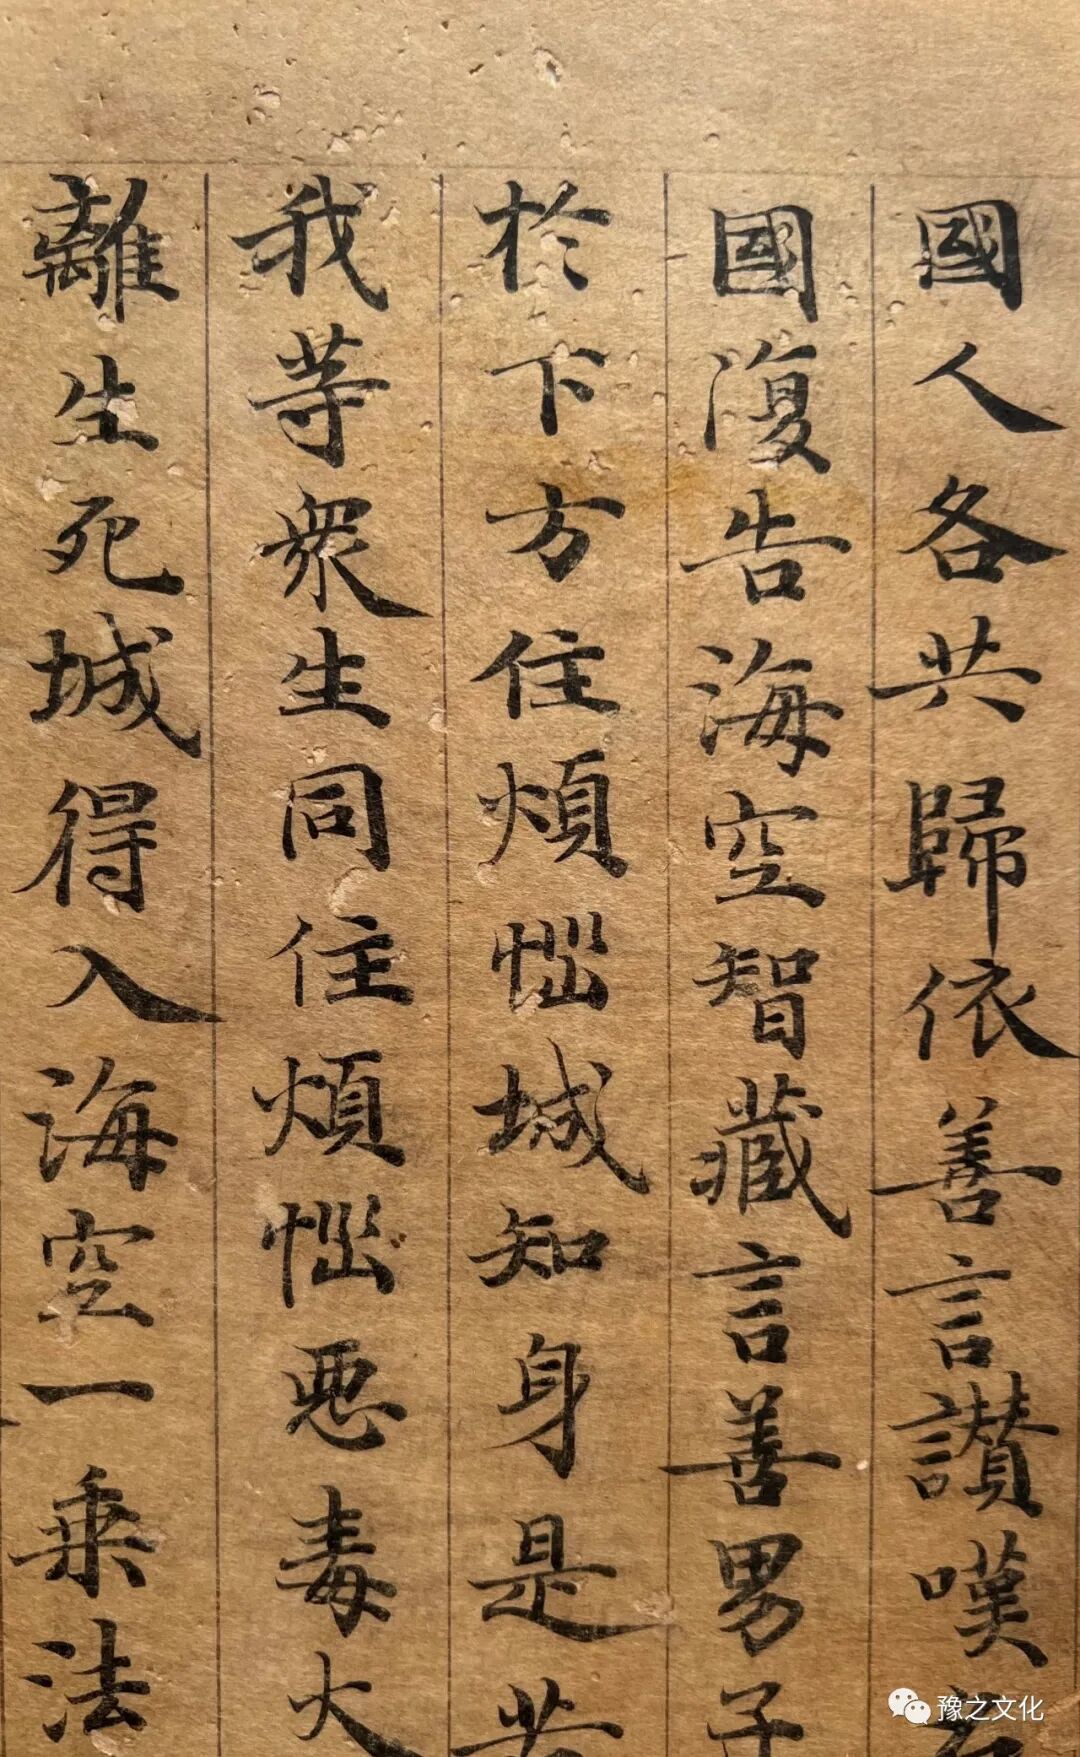 國人各共歸依善言讃嘆
國復告海空智藏言善男子
於下方住煩惱城知身是苦
我等衆生同住煩惱惡毒大
離生死城得入海空一乗法
豫之文化